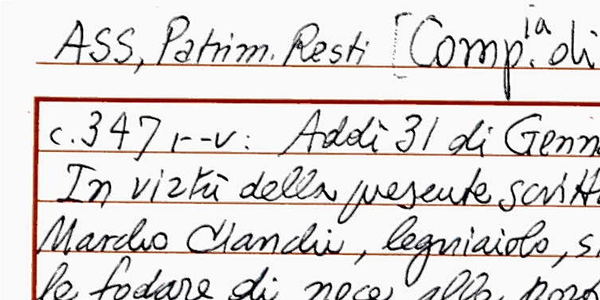 ASS, Patrim. Resti [Comp.ia di
c. 347 r-v: Addì 31 di Genn
In virtù della presente scritt
Marcho Clandii, legniaiolo, s
le fodare di noce alle port